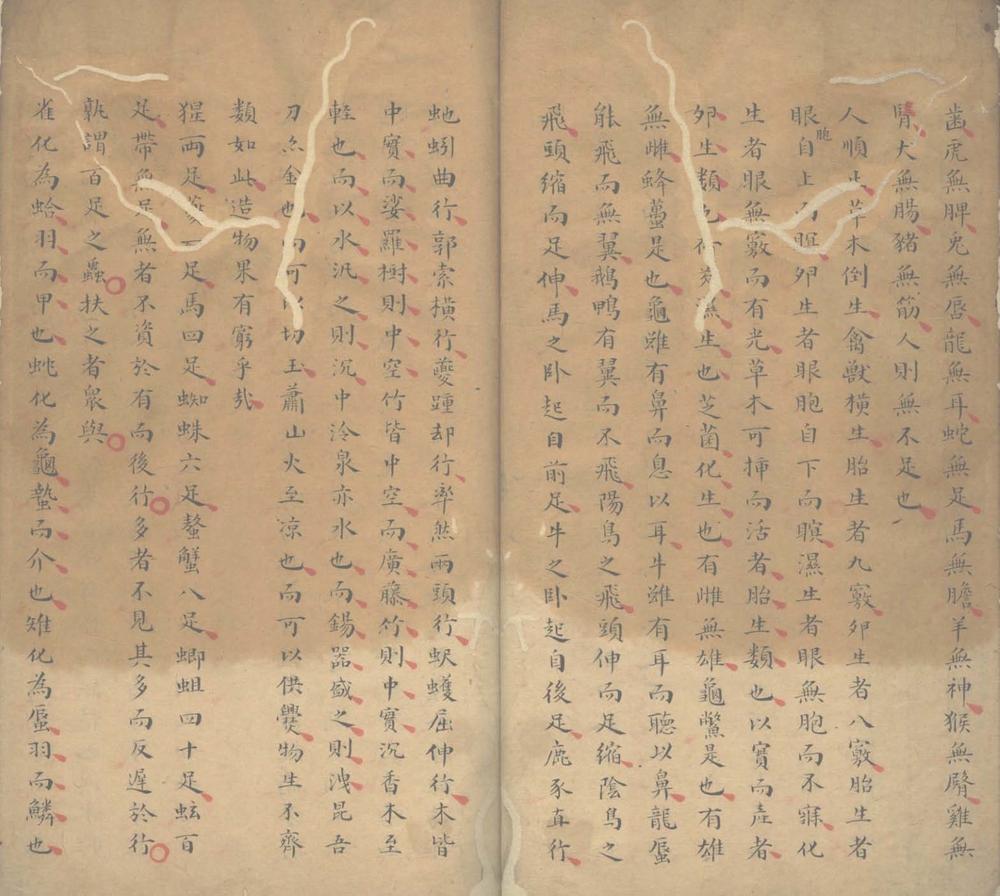 歯虎無脾兎無唇龍無耳蛇無足馬無膽羊無神猴無臀雞無
腎犬無腸豬無筋人則無不足也
人順生草木倒生禽獸橫生胎生者九竅卵生者八竅胎生者
眼胞自上而瞑卵生者眼胞自下而瞑濕生者眼無胞而不寐化
生者眼無竅而有光草木可揷而活者胎生類也以實而産者
卵生類也濕生也芝菌化生也有雌無雄龜鱉是也有雄
無雌蜂蠆是也龜雖有鼻而息以耳牛雖有耳而聽以鼻龍蜃
能飛而無翼鵝鴨有翼而不飛陽鳥之飛頭伸而足縮陰鳥之
飛頭縮而足伸馬之卧起自前足牛之卧起自後足鹿豕直行
虵蚓曲行郭索橫行蘷踵却行率然兩頭行蚇蠖屈伸行木皆
中實而娑羅樹則中空竹皆中空而廣藤竹則中實沉香木至
軽也而以水汎之則沉中泠泉亦水也而錫器盛之則洩昆吾
刀亦金也而可以切玉蕭山火至凉也而可以供爨物生不齊
類如此造物果有窮乎㢤
猩兩足蘷一足馬四足蜘蛛六足螯蟹八足蝍蛆四十足蚿百
足帶無足無者不資於有而後行多者不見其多而反遲於行
孰謂百足之蟲扶之者衆與
雀化為蛤羽而甲也虵化為龜蟄而介也雉化為蜃羽而鱗也